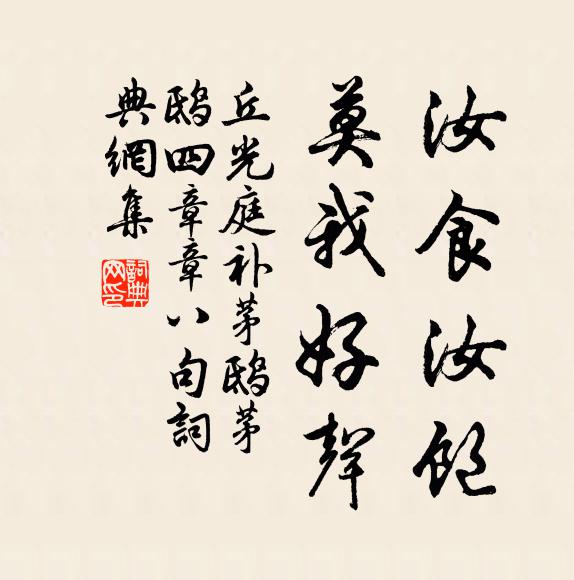 汝食汝飽
莫我好聲
丘光庭补茅鴟茅
鴟四章章八句詞
典網集
詞典
网印